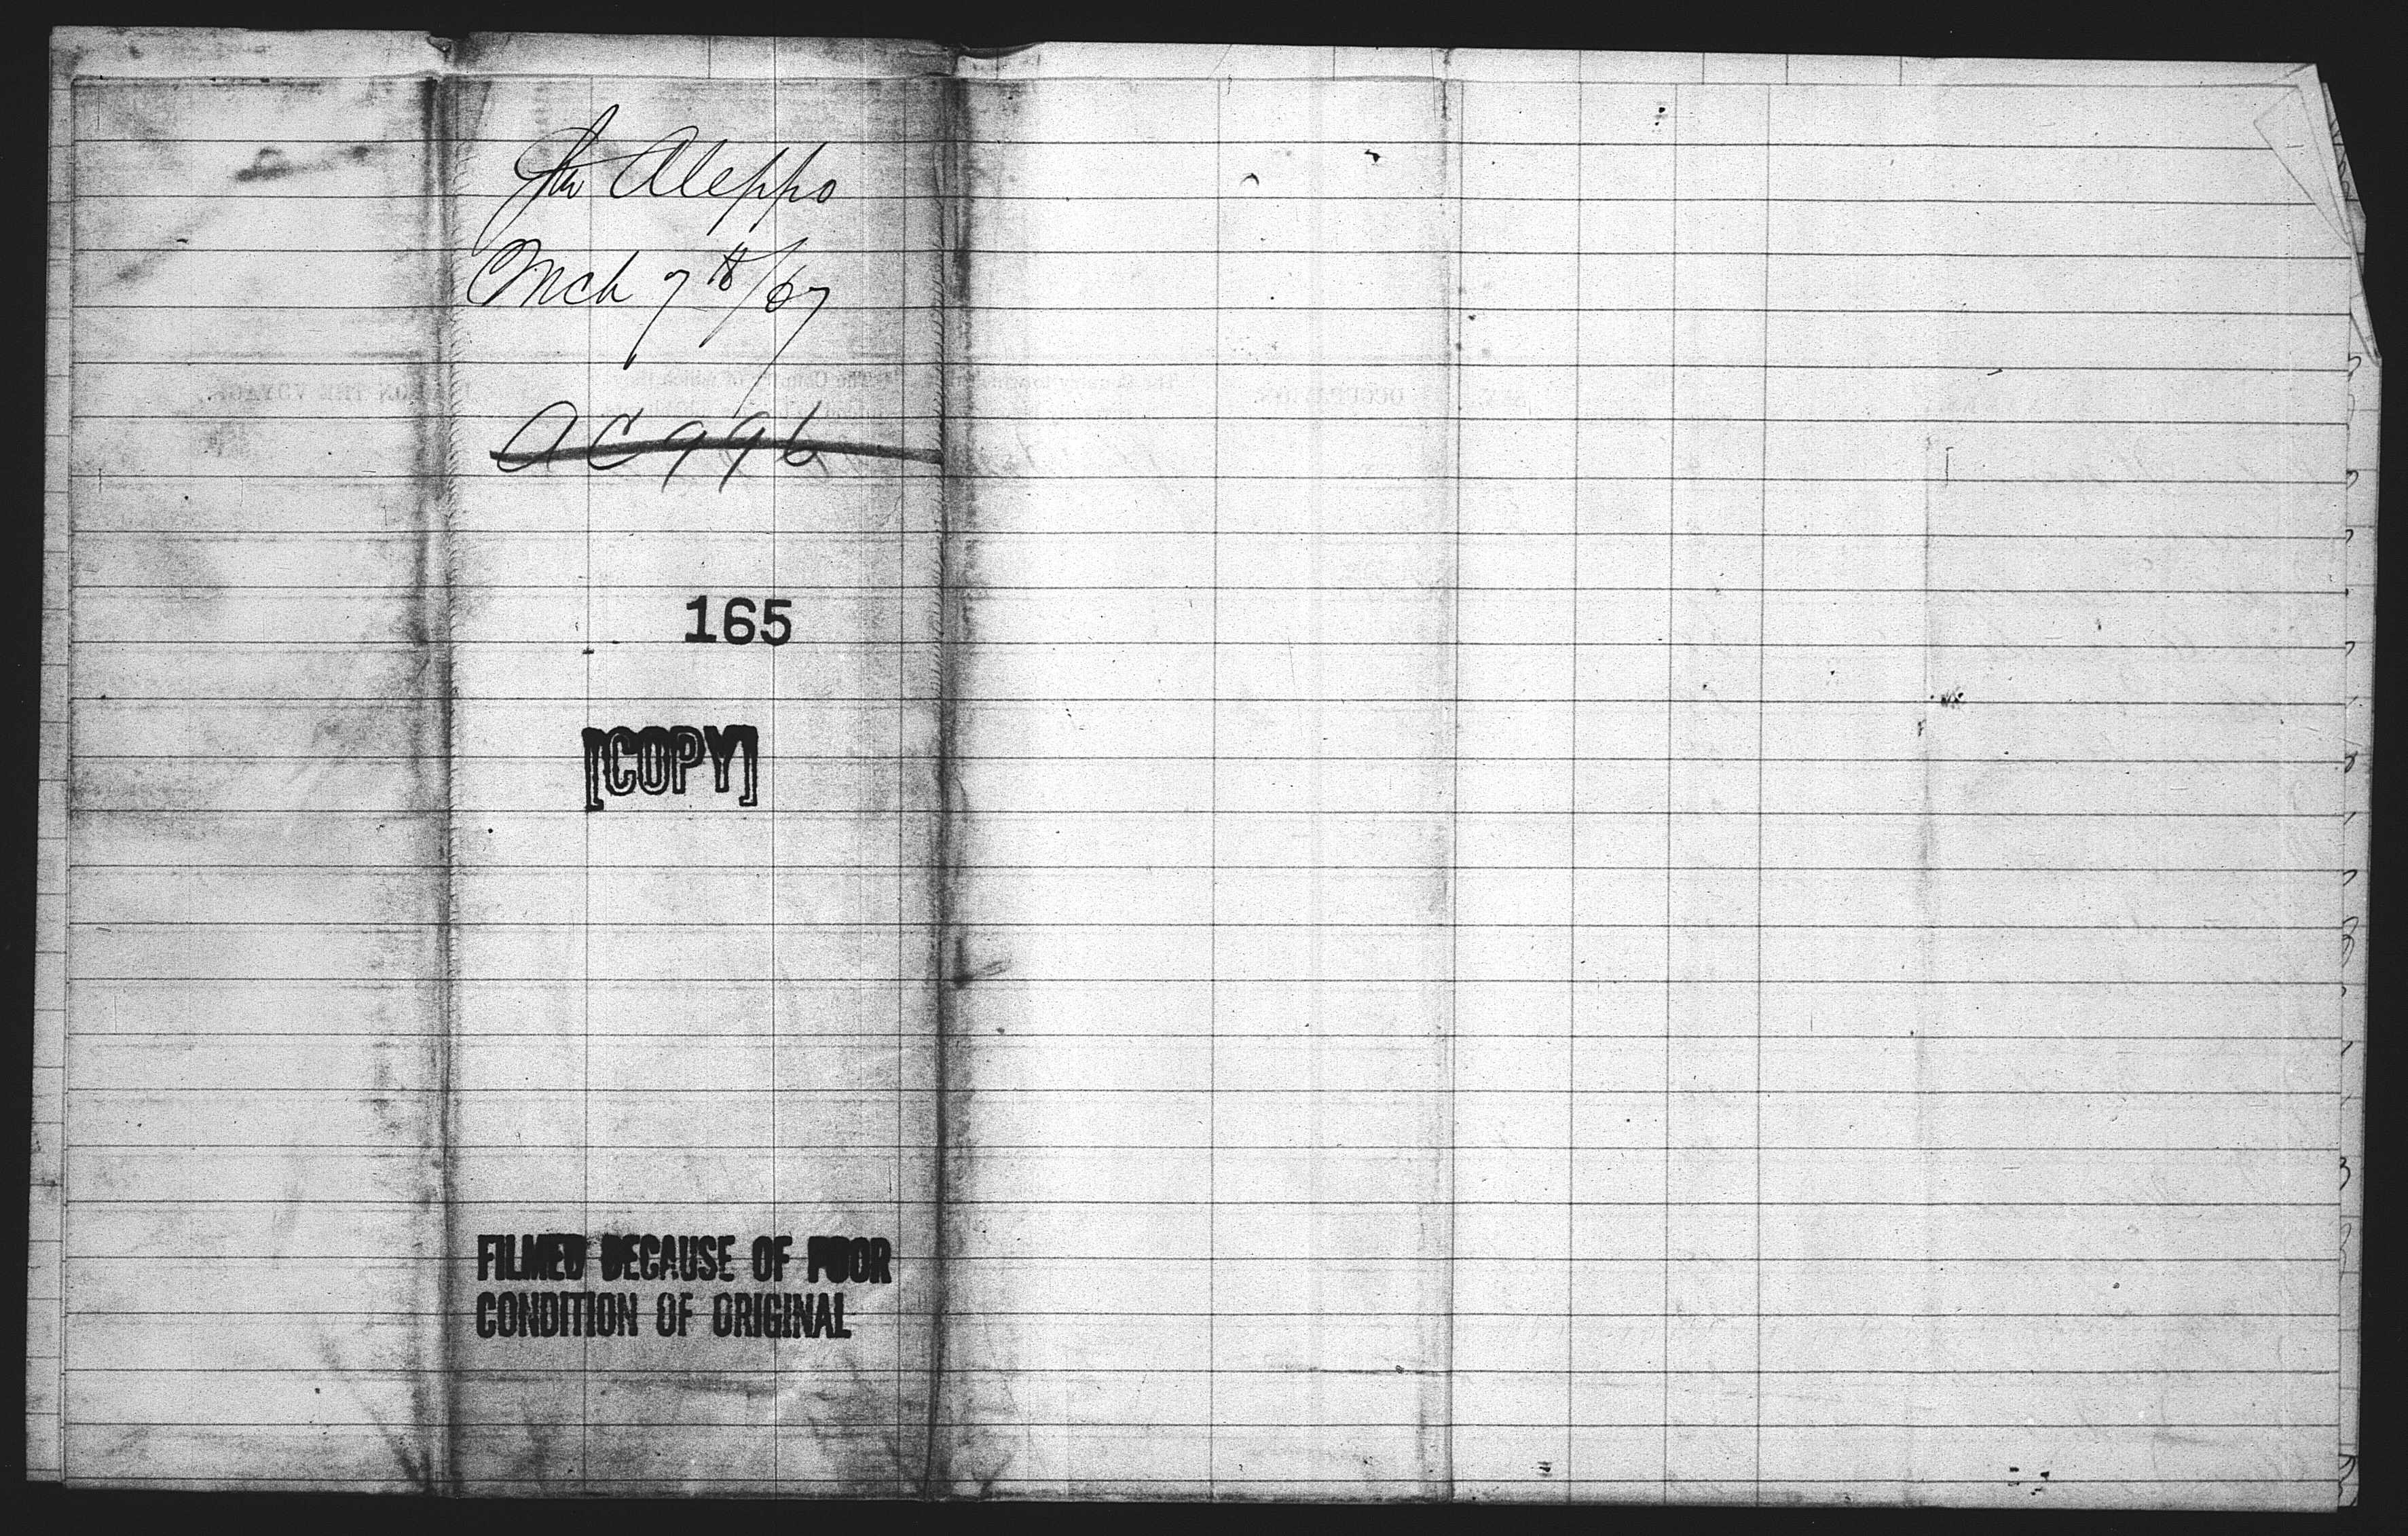 Str Aleppo
Mch 7th/67
AC 996
165
[COPY]
FILMED BECAUSE OF POOR
CONDITION OF ORIGINAL